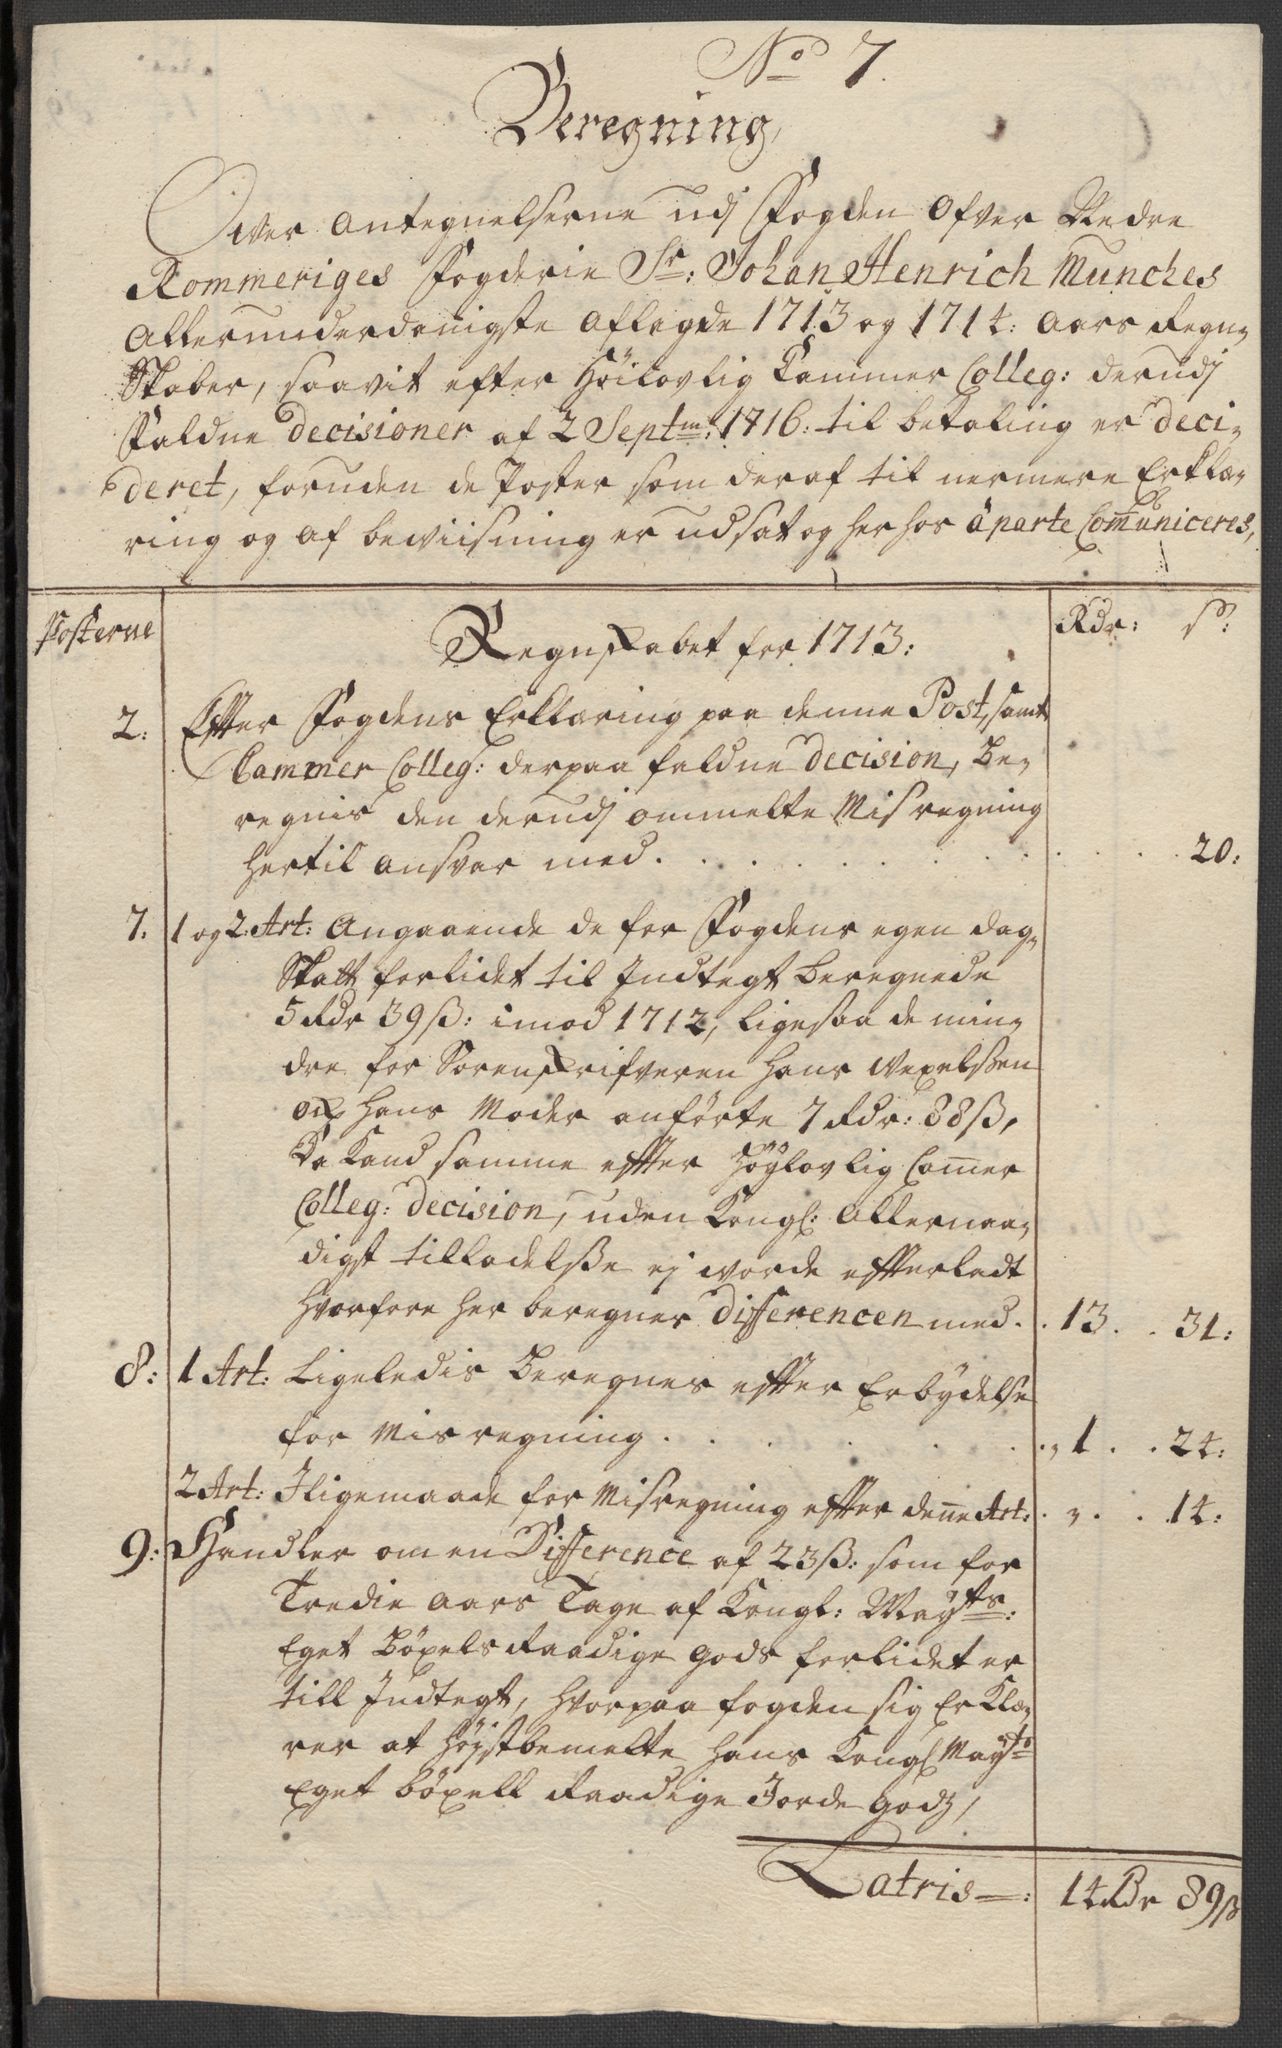 No 7.
Beregning,
Over Antegnelserne udj Fogden Ofver Nedre
Rommeriges Fogderie Sr: Johan Henrich Munches
Allerunderdanigste Aflagde 1713 og 1714: Aars Regn-
Skaber, saavit efter Höilovlig Cammer Colleg: derudj
Faldne decisioner af 2 Septm: 1716: til betaling er deci-
deret, foruden de Poster som deraf til nermere Erklæ-
ring og af beviisning er udsat og her hos aparte Comuniceres,
Posterne
Rdr: s:
Regnskabet for 1713:
2: Effter Fogdens Erklæring paa denne Post, samt
Cammer Colleg: derpaa faldne decision, Be-
regnis den derudj ommelte Misregning
hertil ansvar med . . . 20:
7. 1 og 2: Art: Angaaende de for Fogdens egen dag-
Skatt forlidet til Indtegt beregnede
5 Rdr 39 ß: imod 1712, ligesaa de min-
dre for Sorenskrifveren Hans Wexelsßen
og hans Moder anførte 7 Rdr: 88 ß,
Da Kand samme effter Höyglovlig Camer
Colleg: decision, uden Kongl: Allernaa-
digst tilladelsße ej worde effterladt
hvorfore her beregnes differencen med . . 13 . . 31:
8: 1 Art: Ligeledis Beregnes effter Erbydelse
for Misregning . . . 1 . . 24:
2 Art: Iligemaade for Misregning effter dene Art: . „ . . 14:
9: Handler om en Difference af 23 ß: som for
Tredie Aars Tage af Kongl: Mayts:
Eget Böxels Raadige gods forlidet er
till Indtegt, hvorpaa fogden sig Erklæ-
rer at höystbemelte Hans Kongl Mayts
Eget böxell Raadige Jorde godz,
Latris —: 14 Rdr 89 ß